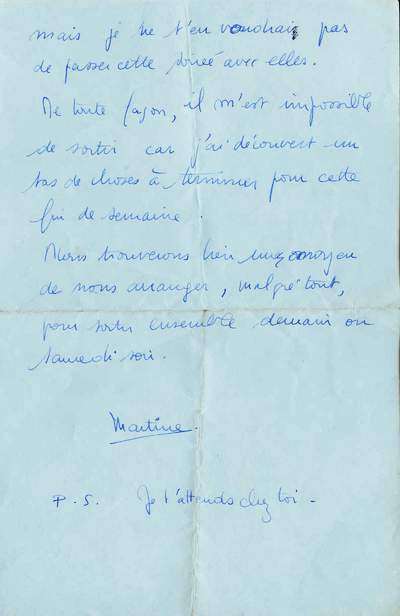 mais je ne t'en voudrais pas
de passer cette soirée avec elles.
De toute façon, il m'est impossible
de sortir car j'ai découvert un
tas de choses à terminer pour cette
fin de semaine.
Nous trouverons bien un moyen
de nous arranger, malgré tout,
pour sortir ensemble demain ou
samedi soir.
Martine.
P.S. Je t'attends chez toi -